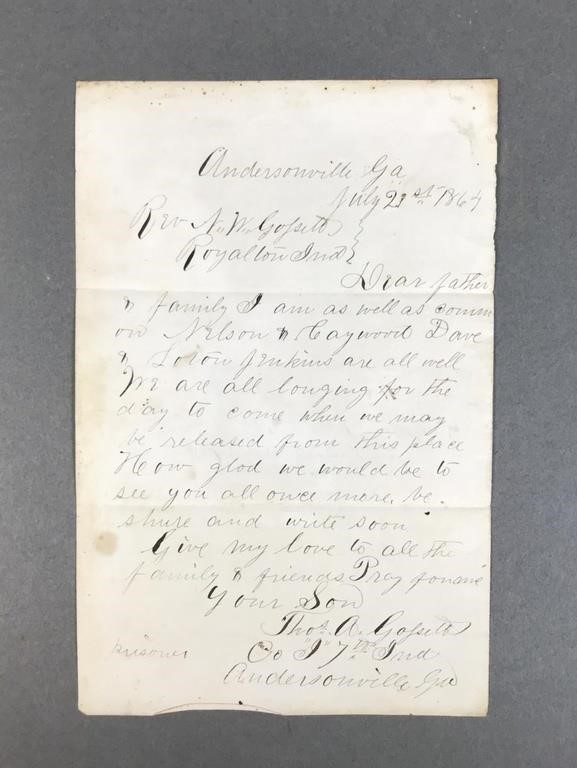 Andersonville Ga
July 21st 1864
Rev N. W. Gossett
Royalton Ind
Dear father
& family I am as well as comm
on Nelson & Haywood Dave
& Loton Jenkins are all well
We are all longing for the
day to come when we may
be released from this place
How glod we would be to
see you all once more, be
shure and write soon
Give my love to all the
family & friends Pray for me
Your Son
Thos. A. Gossett
prisoner Co "I" 7th Ind
Andersonville Ga